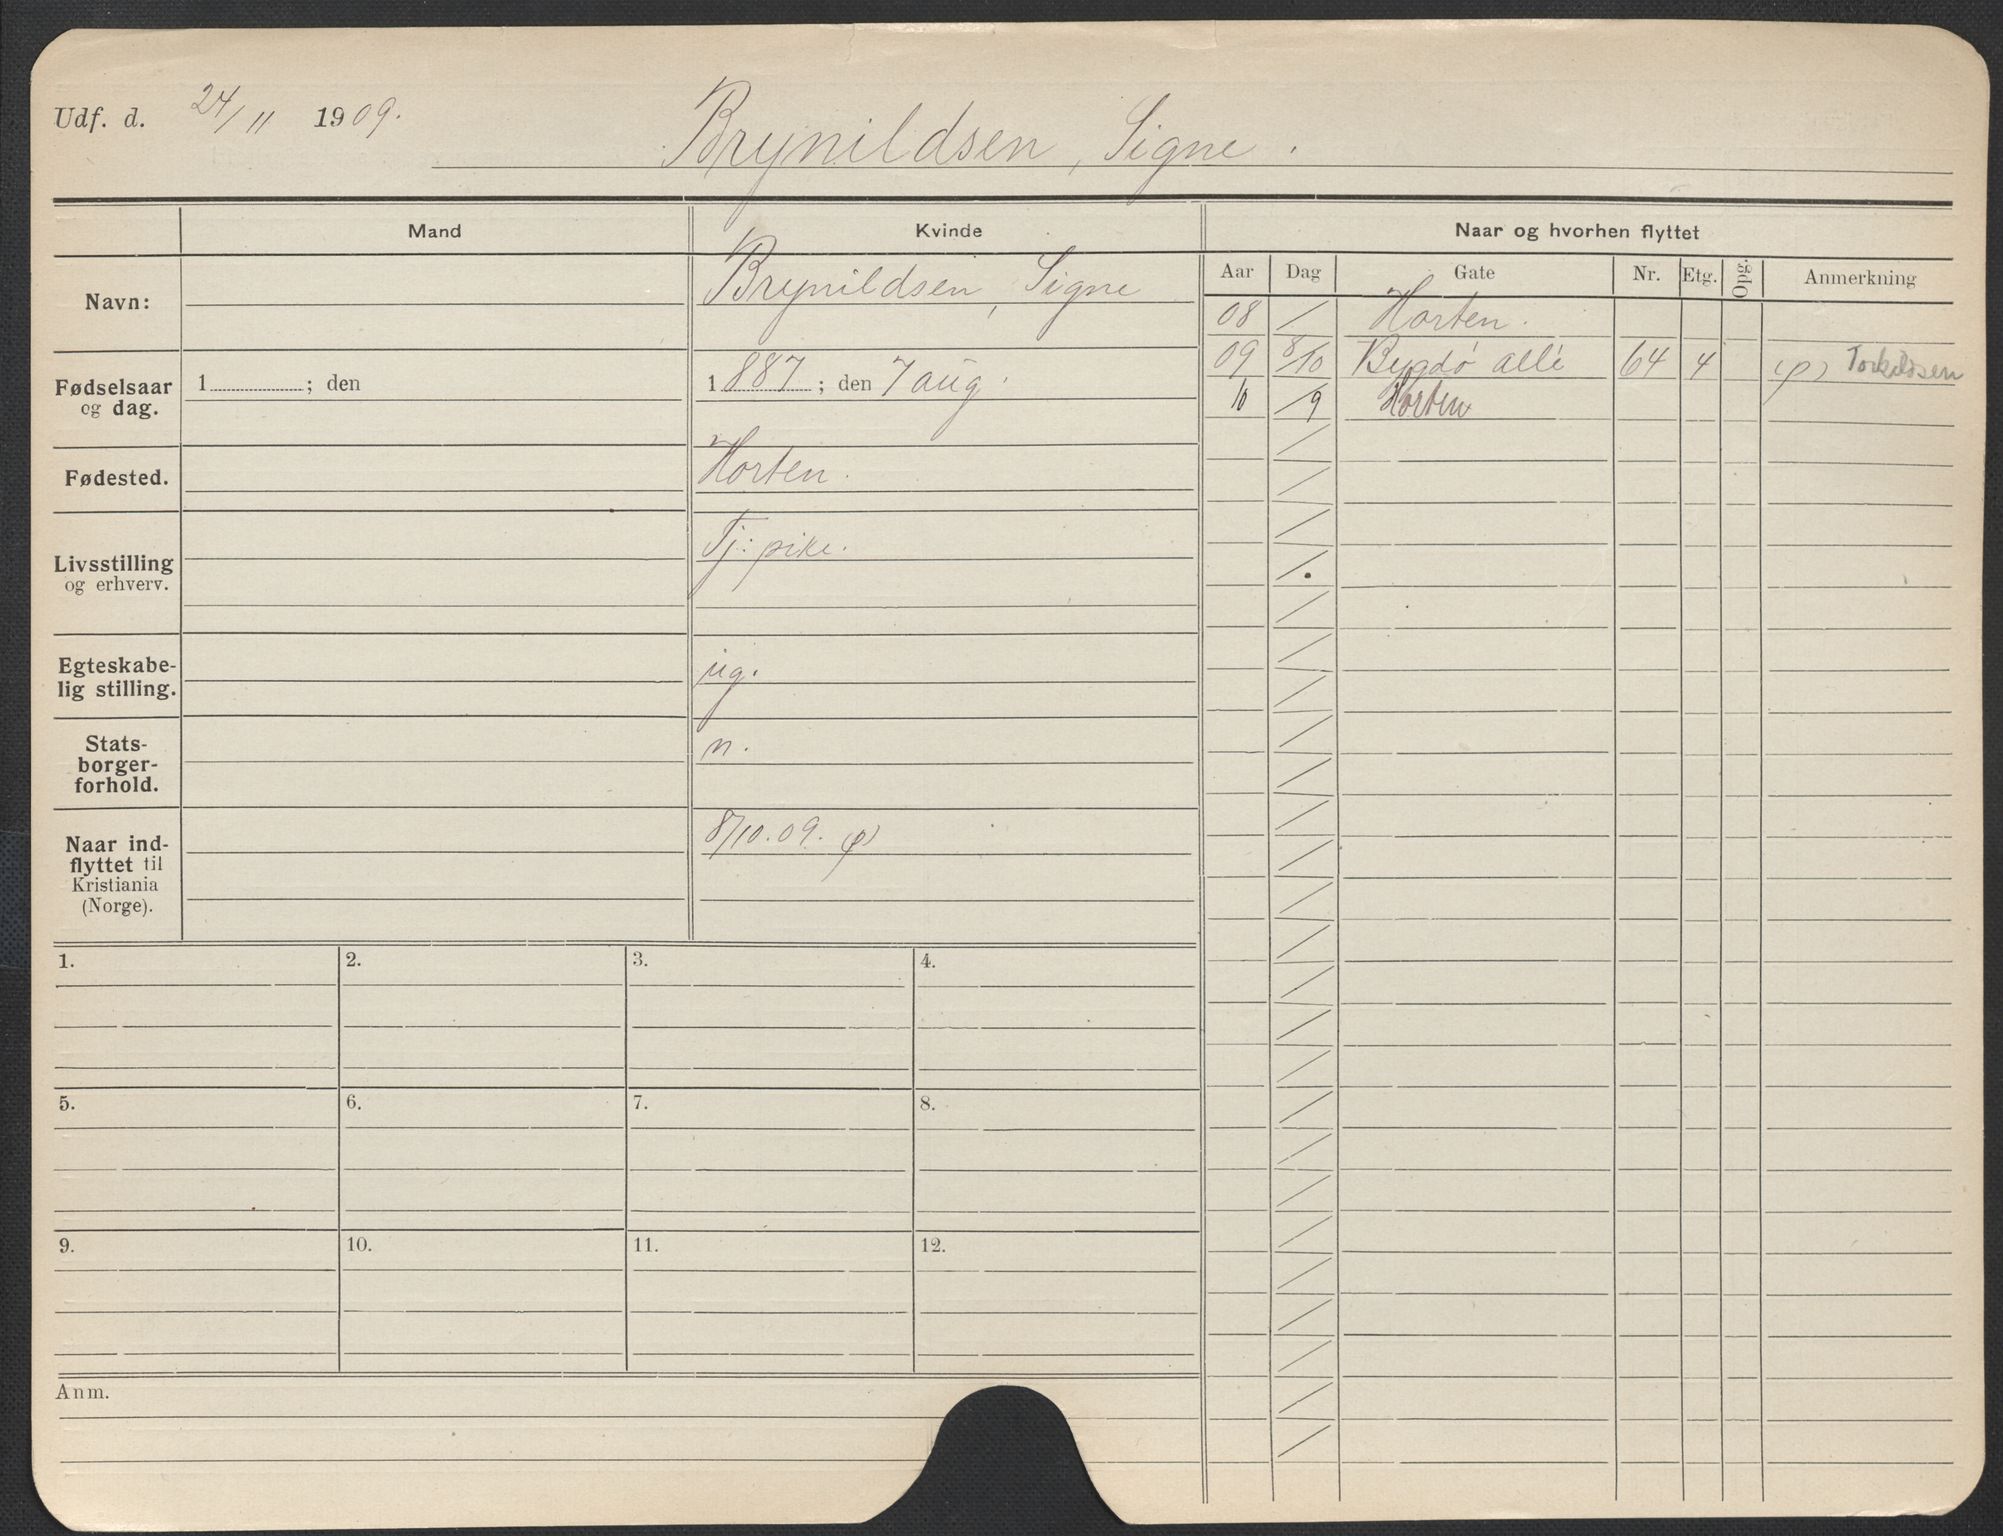 Udf. d. 24/11 1909.
Brynildsen, Signe.
Mand
Kvinde
Naar og hvorhen flyttet
Aar Dag Gate Nr. Etg. Opg. Anmerkning
Navn:
Brynildsen, Signe
08 / Horten.
09 8/10 Bygdø allé 64 4 (p) Torkildsen
10 /9 Horten
Fødselsaar
og dag.
1 ; den
1887 ; den 7 aug.
Fødested.
Horten.
Livsstilling
og erhverv.
Tj: pike.
Egteskabe-
lig stilling.
ug.
Stats-
borger-
forhold.
n.
Naar ind-
flyttet til
Kristiania
(Norge).
8/10.09. (p)
1. 2. 3. 4.
5. 6. 7. 8.
9. 10. 11. 12.
Anm.